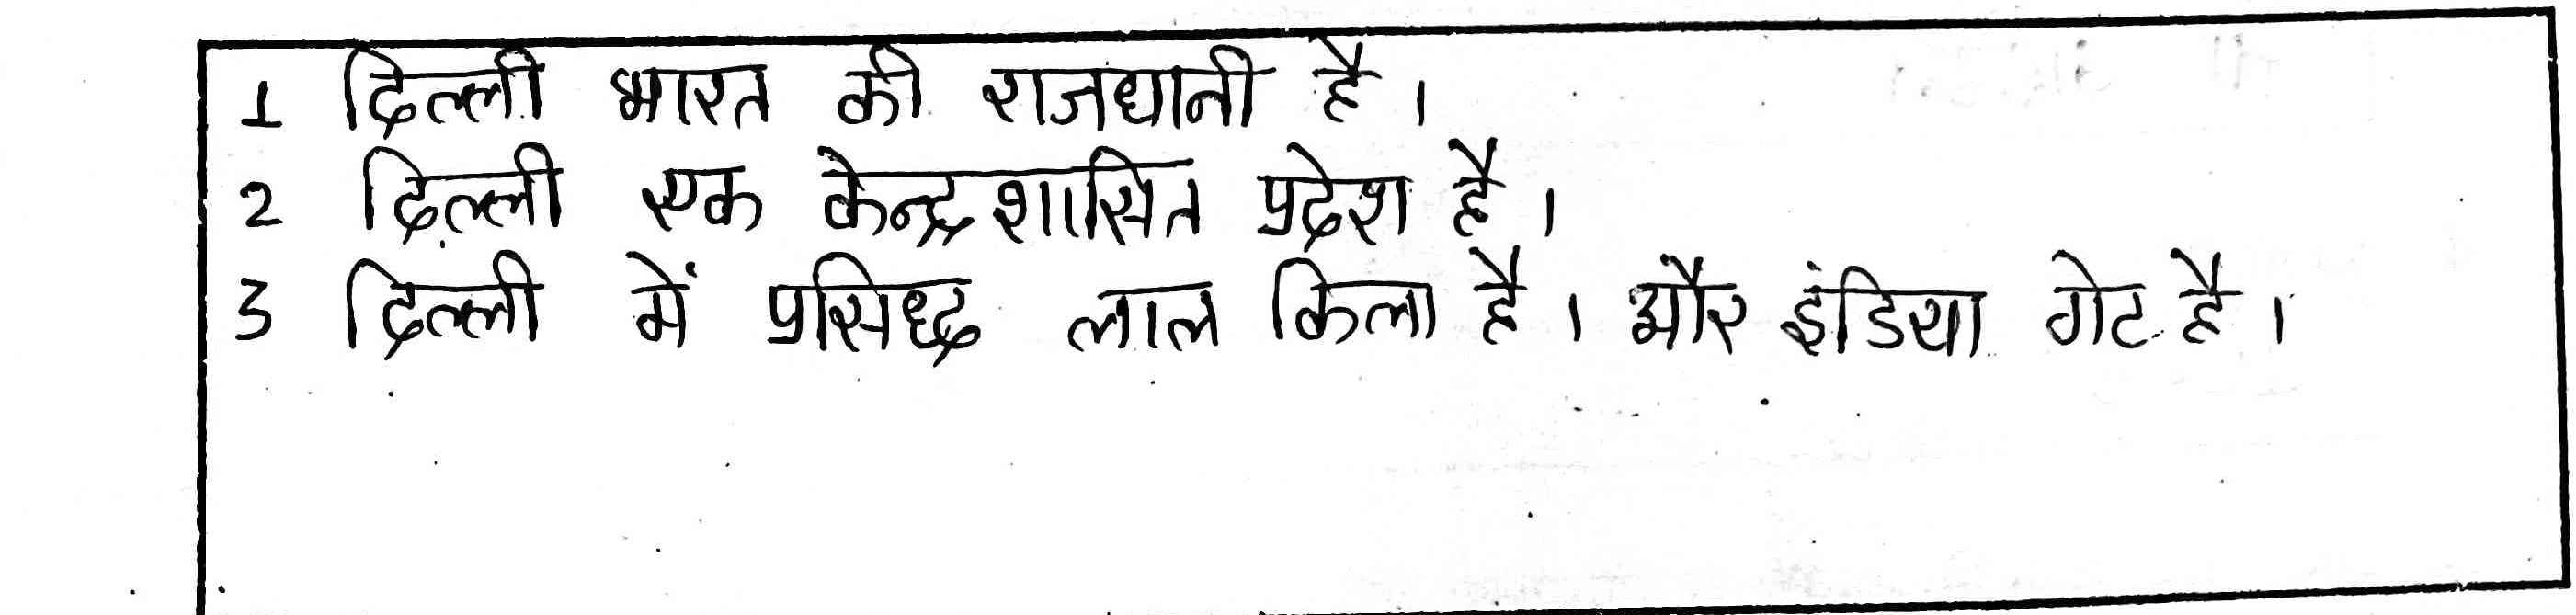 1 दिल्ली भारत की राजधानी है।
2 दिल्ली एक केन्द्रशासित प्रदेश है।
3 दिल्ली में प्रसिध्द लाल किला है। और इंडिया गेट है।